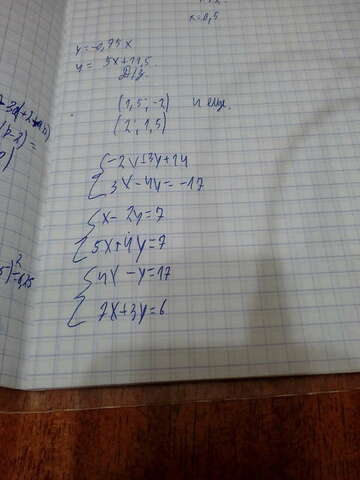 k=0,5
y=-0,75x
y= 5x+11,5
Д/з.
(1,5; -2) и еще.
(2; 1,5)
{-2x±3y+14
3x-4y=-17
{x-2y=7
5x+4y=7
{4x-y=17
7x+3y=6